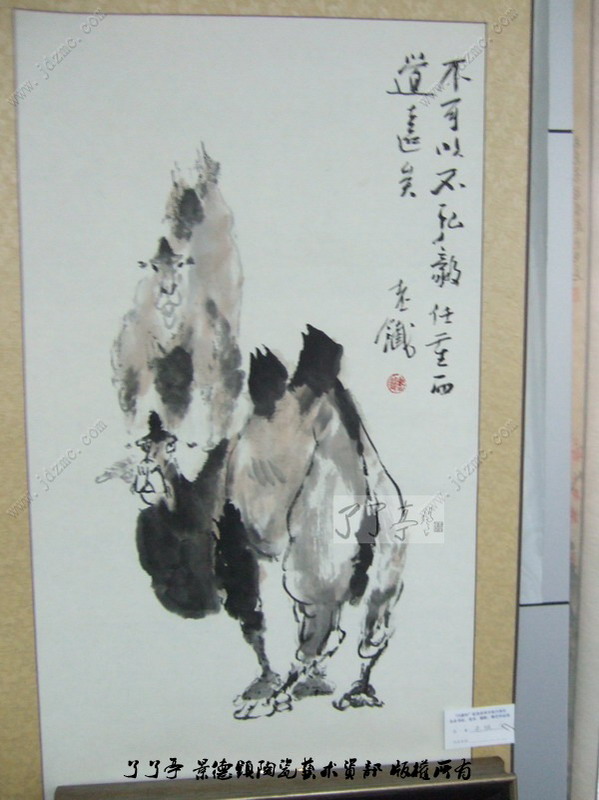 www.jdzmc.com
www.jdzmc.com
不可以不弘毅任重而
道遠矣
www.jdzmc.com
www.jdzmc.com
了了亭
了了亭 景德鎮陶瓷藝术資部 版權所有